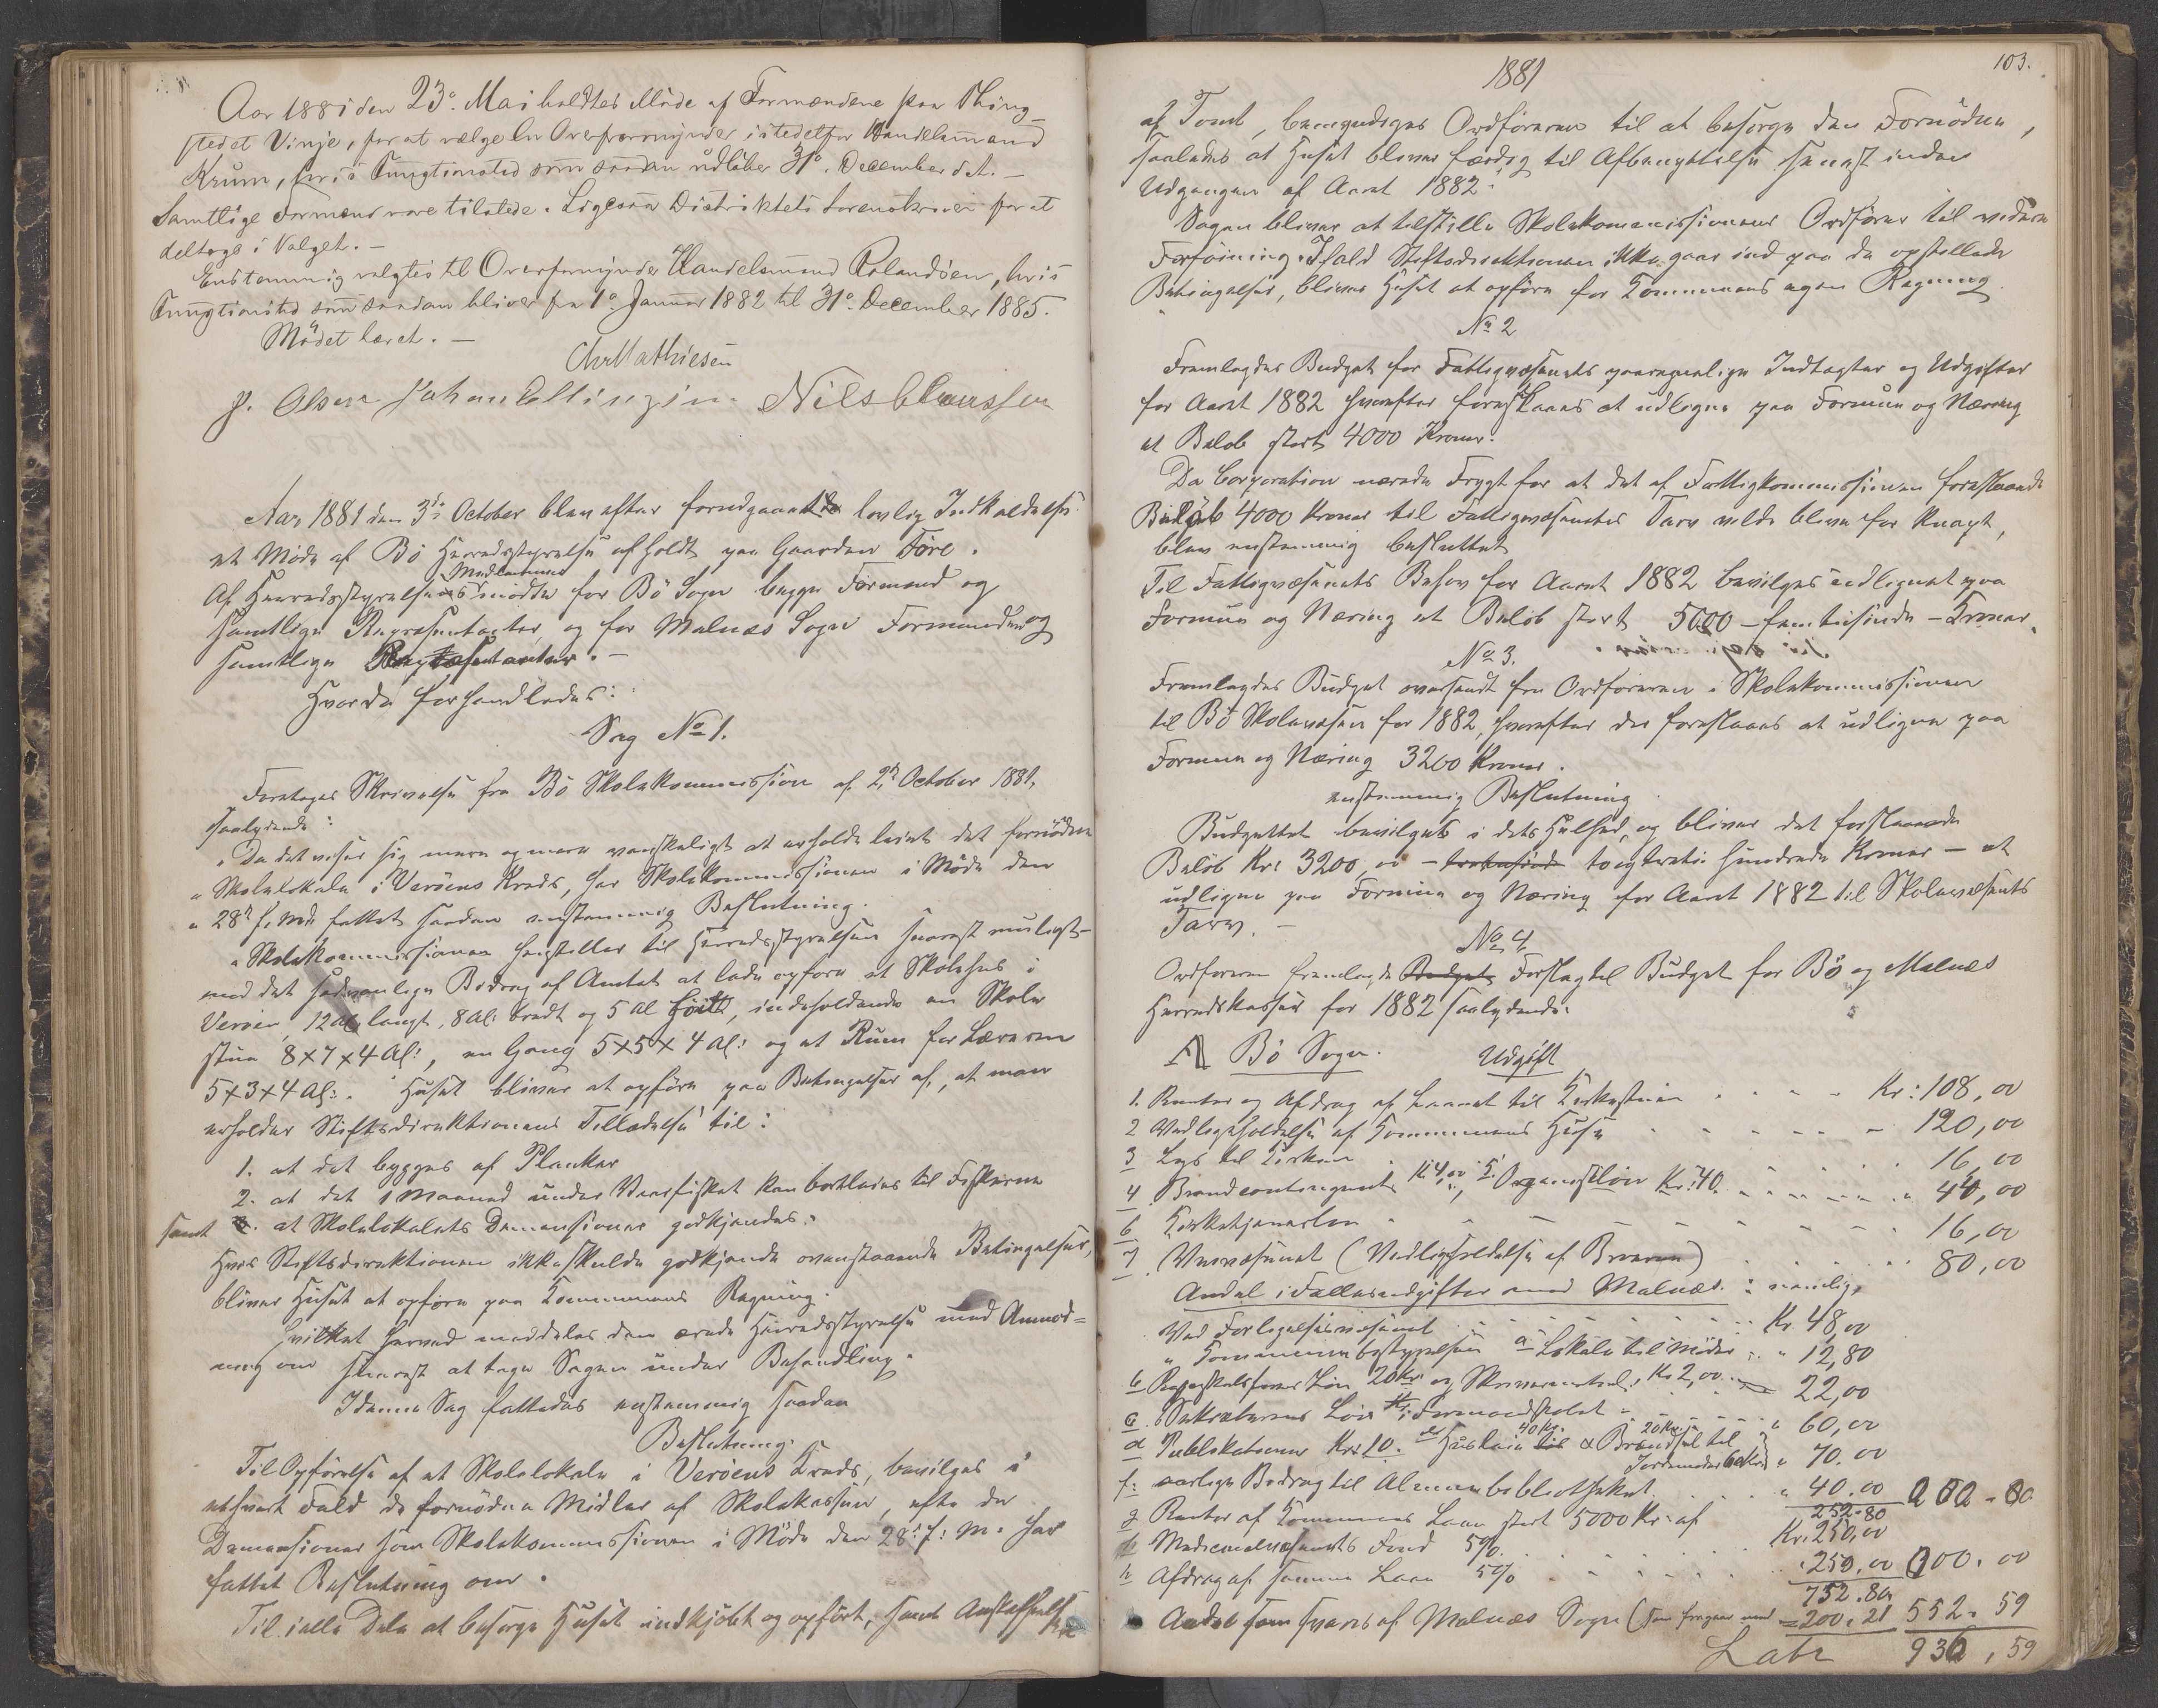 Aar 1881 den 23de Mai holdtes Møde af Formændene paa Thing-
stedet Vinje, for at vælge En Overformynder istedetfor Handelsmand
Krum, hvis Fungtionstid som saadan udløber 31te December d. A. –
Samtlige Formænd vare tilstede. Ligesaa Distriktets Lensmand for at
deltage i Valget. –
Enstemmig valgtes til Overformynder Handelsmand Rolandsen, hvis
Fungtionstid som saadan bliver fra 1te Januar 1882 til 31te December 1885.
Mødet hævet. –
Chr Mathiesen
P. Olsen Johan Ellingsen Nils Clausssen
Aar 1881 den 3die October blev efter forudgaaende lovlig Indkaldelse
et Møde af Bø Herredsstyrelse afholdt paa Gaarden Føre.
Medlemmer
Af Herredsstyrelsens mødte for Bø Sogn begge Formænd og
samtlige Repræsentanter og for Malnæs Sogn Formanden og
samtlige Repræsentanter. –
Hvorda forhandledes:
Sag No 1.
Foretoges Skrivelse fra Bø Skolekommission af 2den October 1881,
saalydende:
"Da det viser sig mere og mere vanskeligt at erholde leiet det fornødne
"Skolelokale i Verøens Kreds, har Skolekommissionen i Møde den
"28de f. Md. fattet saadan enstemmig Beslutning.
"Skolekommissionen henstiller til Herredsstyrelsen snarest muligst-
med det sedvanlige Bidrag af Amtet at lade opføre et Skolehus i
Verøen, 12 Al langt, 8 Al: bredt og 5 Al høit, indeholdende en Skole
stue 8x7x4 Al:, en Gang 5x5x4 Al: og et Rum for Læreren
5x3x4 Al:. Huset bliver at opføre paa Betingelse af, at man
erholder Stiftsdirektionens Tilladelse til:
1. at det bygges af Planker
2. at det 1 Maaned under Vaarfisket kan bortleies til Fiskerne
samt 3. at Skolelokalets Demensioner godkjendes.
Hvis Stiftsdirektionen ikke skulde godkjende ovenstaaende Betingelser,
bliver Huset at opføre paa Kommunens Regning.
Hvilket herved meddeles den ærede Herredsstyrelse med Anmod-
ning om snarest at tage Sagen under Behandling.
I denne Sag fattedes enstemmig saadan
Beslutning:
Til Opførelse af et Skolelokale i Verøens Kreds, bevilges i
ethvert Fald de fornødne Midler af Skolekassen, efter de
Demensioner som Skolekommissionen i Møde den 28de f: M: har
fattet Beslutning om.
Til i alle Dele at besørge Huset indkjøbt og opført, samt Anskaffelse
1881
103.
af Tomt, bemyndiges Ordføreren til at besørge den Fornødne,
saaledes at Huset bliver færdig til Afbenyttelse senest inden
Udgangen af Aaret 1882.
Sagen bliver at tilstille Skolekommissionens Ordfører til videre
Forføining. Ifald Stiftsdirektionen ikke gaar ind paa de opstillede
Betingelser, bliver Huset at opføre for Kommunens egen Regning.
No 2
Fremlagdes Budget for Fattigvæsenets paaregnelige Indtægter og Udgifter
for Aaret 1882 hvorefter foreslaaes at udligne paa Formue og Næring
et Beløb stort 4000 Kroner.
Da Corporation nærede Frygt for at det af Fattigkommissionen foreslaaede
Beløb 4000 Kroner til Fattigvæsenets Tarv vilde blive for knapt,
blev enstemmig besluttet
Til Fattigvæsenets Behov for Aaret 1882 bevilges udlignet paa
Formue og Næring et Beløb stort 5000 – femtusinde – Kroner.
No 3.
Fremlagdes Budget oversendt fra Ordføreren i Skolekommissionen
til Bø Skolevæsen for 1882, hvorefter der foreslaaes at udligne paa
Formue og Næring 3200 Kroner.
enstemmig Beslutning
Budgettet bevilgets i dets Helhed, og bliver det foreslaaede
Beløb Kr: 3200,00 – tretusinde toogtretti hundrede Kroner – at
udligne paa Formue og Næring for Aaret 1882 til Skolevæsenets
Tarv. –
No 4
Ordføreren fremlagde Budget Forslag til Budget for Bø og Malnæs
Herredskasser for 1882 saalydende:
A Bø Sogn. Udgift
1. Renter og Afdrag af Laanet til Kirkestuen Kr: 108,00
2 Vedligeholdelse af Kommunens Huse 120,00
3 Lys til Kirken 16,00
4 Brandcontingent Kr 4,00, 5. Organistløn Kr: 40 44,00
6 Kirketjeneren 16,00
7 Veivæsenet (Vedligeholdelse af Broeren) 80,00
Andel i Fællesudgifter med Malnæs: nemlig
Ved Forligelsesvæsenet Kr 48,00
" Kommunebestyrelsen a Lokale til Møder " 12,80
b Regnskabsførers Løn 20 Kr: og Skrivematerial: Kr 2,00 22,00
c Sekretærens Løn i Formandskabet " 60,00
40 Kr. 20 Kr
d Publikationer Kr: 10. Husleie til & Brændsel til
Jordemoder 60 Kr " 70.00
f: aarlige Bidrag til Almuebibliotheket " 40.00 252-80
252.80
g Renter af Kommunens Laan stort 5000 Kr: af
Medicinalvæsenets Fond 5% Kr. 250,00
h Afdrag af samme Laan 5% 250.00 500.00
752.80
Andel som svares af Malnæs Sogn (som fragaar med = 200.21 552.59
Latr 936,59